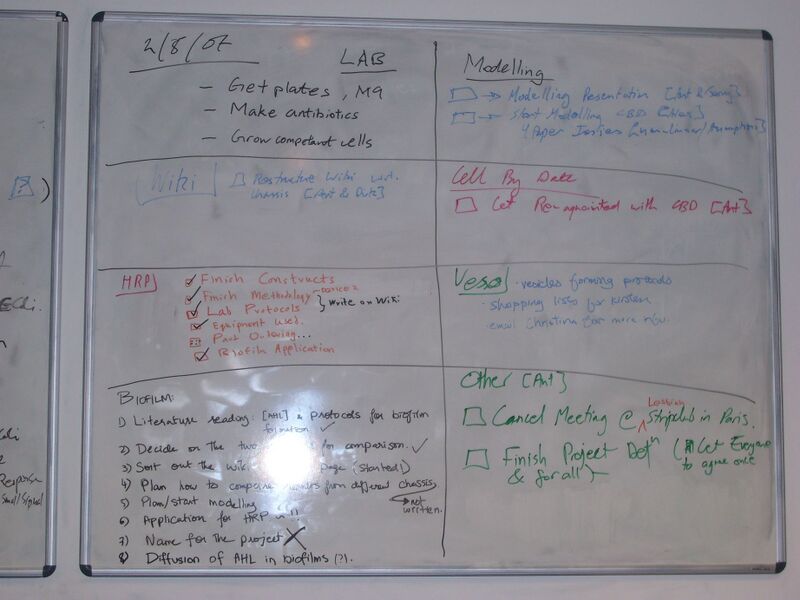 2/8/07
LAB
- Get plates, M9
- Make antibiotics
- Grow competent cells
Modelling
Modelling Presentation [Ant &
Start Modelling CBD
4 Paper
Wiki
Restructure Wiki w.r.t.
chassis [Ant & Dirk]
Cell By Date
Get Reacquainted with CBD [Ant]
HRP
Finish Constructs
Finish Methodology
Lab Protocols } Write on Wiki
Equipment Used
Part Ordering...
Biofilm Application
Vesicle
- vesicles forming protocols
- shopping lists for kirsten
- email christina for more info.
BIOFILM:
1) Literature reading: [AHL] & protocols for biofilm
formation ✓
2) Decide on the two for comparison. ✓
3) Sort out the Wiki page (started!)
4) Plan how to compare from different chassis
5) Plan/start modelling
not
written.
6) Application for HRP
7) Name for the project X
8) Diffusion of AHL in biofilms (?).
Other [Ant]
Lesbian
Cancel Meeting @ Stripclub in Paris.
Finish Project Defn (Get Everyone
to agree once
& for all)
[?] )
Response
Small/Signal